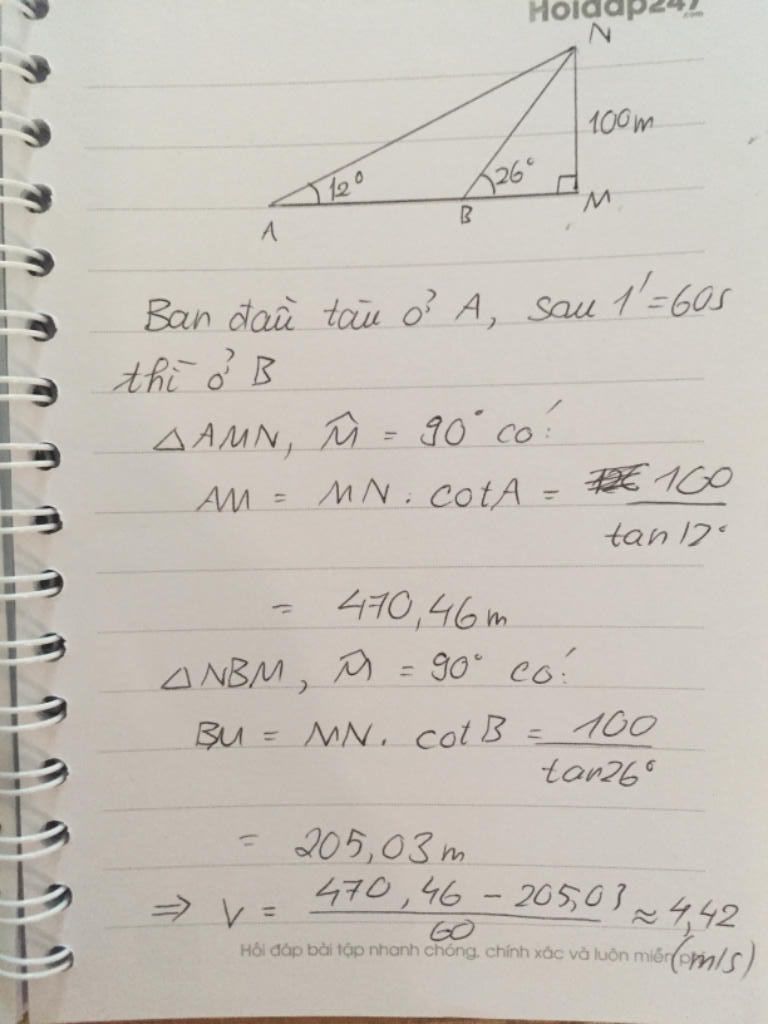 Hoidap247
.com
N
100m
12° 26°
A B M
Ban đầu tàu ở A, sau 1' = 60s
thì ở B
△AMN, M̂ = 90° có:
AM = MN . cotA = 100 / tan12°
= 470,46m
△NBM, M̂ = 90° có:
BM = MN . cotB = 100 / tan26°
= 205,03m
⇒ V = 470,46 - 205,03 / 60 ≈ 4,42
(m/s)
Hỏi đáp bài tập nhanh chóng, chính xác và luôn miễn